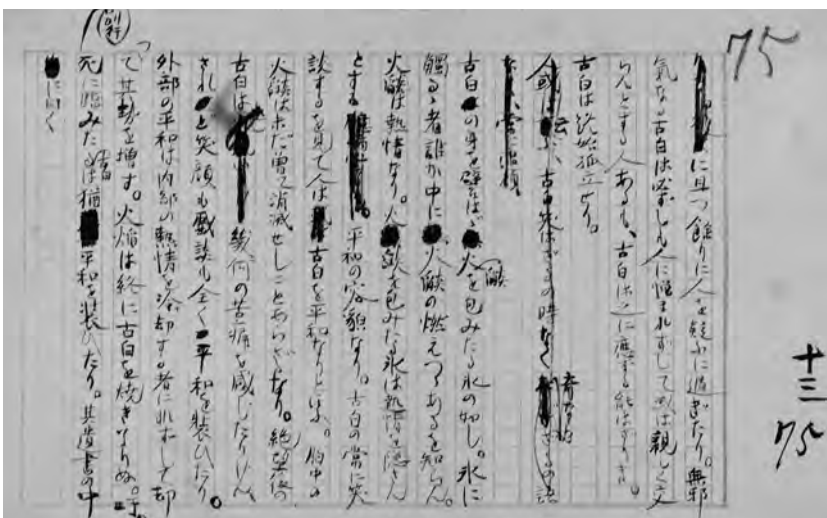 75
十三
75
に且つ餘りに人を疑ふに過ぎたり。無邪
氣なる古白は必ずしも人に惡まれずして或は親しく交
らんとする人あるも、古白は之に應ずる能はずりき。
古白は終始孤立せり。
古白の身を譬へば火を包みたる氷の如し。氷に
觸るゝ者誰か中に火燄の燃えつゝあるを知らん。
火燄は熱情なり。火燄を包みたる氷は熱情を隱さん
とする平和の容貌なり。古白の常に笑
談するを見て人は古白を平和なりといふ。胸中の
火燄は未だ曾て消滅せしことあらざるなり。絶望後の
古白は幾何の苦痛を感じたりけん、
されど笑顔も戲談も全く平和を裝ひたり。
外部の平和は内部の熱情を冷却する者に非ずして却
つて其勢を増す。火焔は終に古白を焼き了りぬ。
別行
死に臨みたる古白は猶平和を裝ひたり。其遺書の中
に曰く